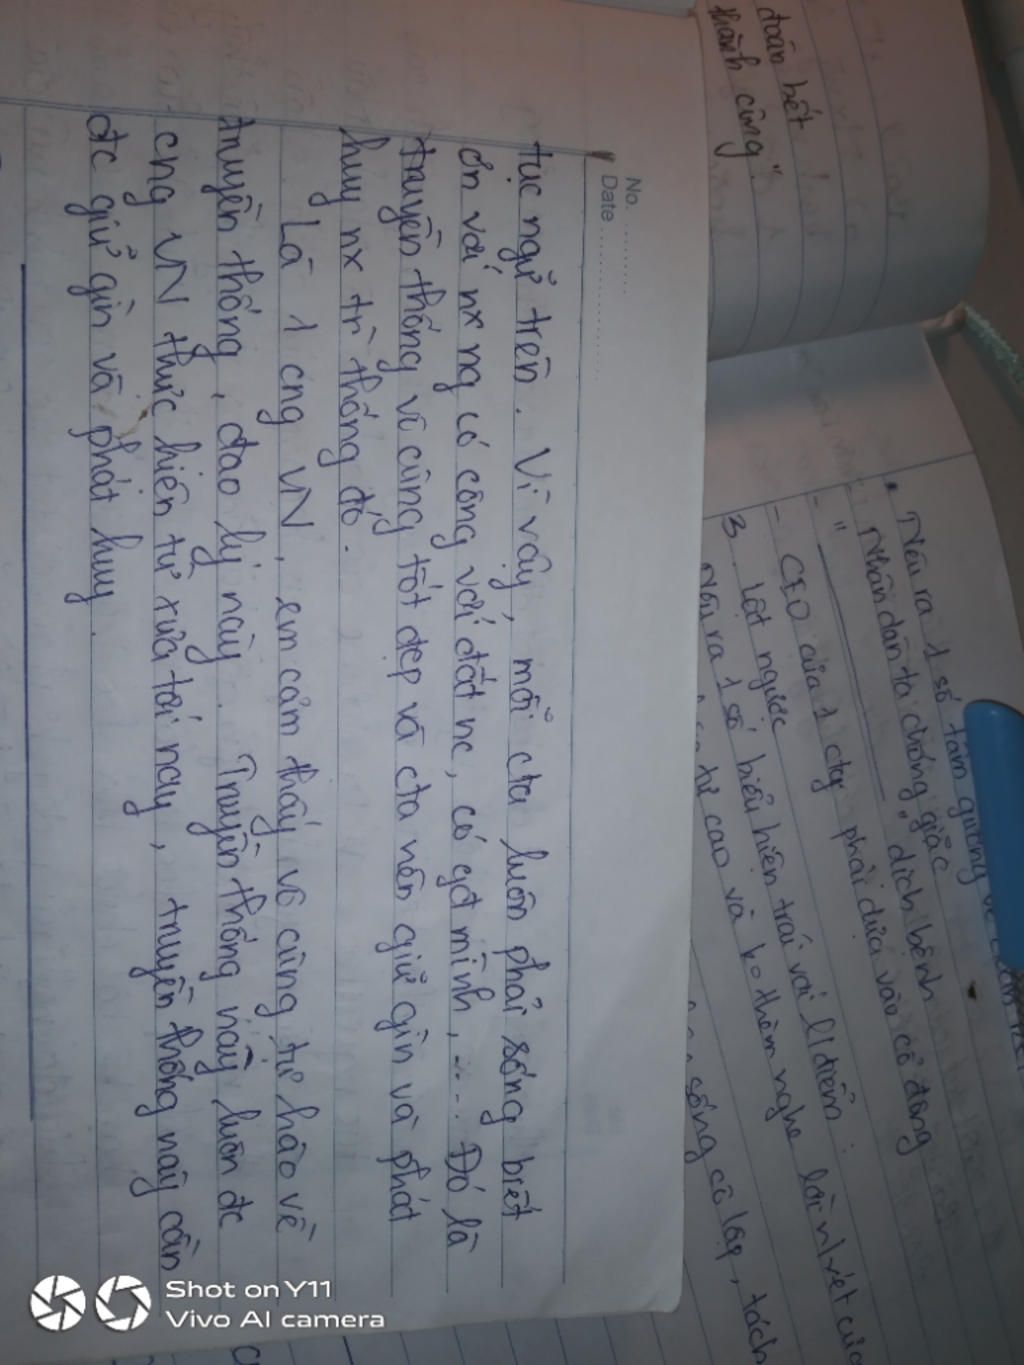 No. ..........
Date ....................
tục ngữ trên. Vì vậy, mỗi cta luôn phải sống biết
ơn với nx ng có công với đất nc, có gđ mình, .... Đó là
truyền thống vô cùng tốt đẹp và cta nên giữ gìn và phát
huy nx tr` thống đó.
Là 1 cng VN, em cảm thấy vô cùng tự hào về
truyền thống, đạo lý này. Truyền thống này luôn đc
cng VN thực hiện từ xưa tới nay, truyền thống này cần
đc giữ gìn và phát huy.
đoán bết
thành công".
Nêu ra 1 số tấm gương về
- "Nhân dân ta chống giặc", dịch bệnh
- "
- CEO của 1 cty phải dựa vào cổ đông
3. Lật ngược
Nêu ra 1 số biểu hiện trái với l/điểm:
tự cao và ko thèm nghe lời n/xét của
sống cô lập, tách
Shot on Y11
Vivo AI camera